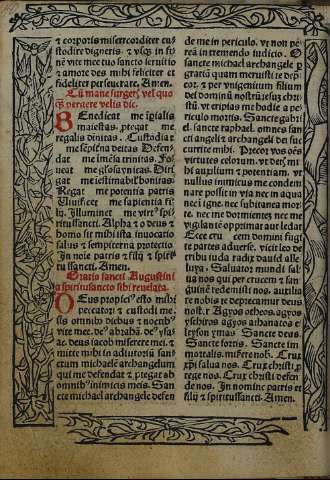 ⁊ corporis misericorditer cu
stodire digneris ⁊ vsq̃ in fi
nē vite mee tuo sancto seruitio
⁊ amore des mihi feliciter et
fideliter perseuerare. Amen.
Cū mane surget, vel quo
q̃ pergere velis dic.
Benedicat me ĩpialis
maiestas. protegat me
regalis diuinitas. Custodiat
me sẽpitna deitas Defen-
dat me ĩmēsa trinitas. Fo
ueat me gl'osa vnitas. Diri
gat me inestimabil' bonitas.
Regat me potentia patris
Viuificet me sapientia fi-
lij. Illuminet me virt' spi-
ritussancti. Alpha ⁊ o deus ⁊
homo sit mihi ista inuocatio
salus ⁊ sempiterna protectio.
In noĩe patris ⁊ filij ⁊ spiri
tussancti. Amen.
Oratio sancti Augustini
a spiritusancto sibi reuelata.
Deus propici' esto mihi
peccatori ⁊ custodi me
sis omnib' diebus ⁊ noctib'
vite mee. de' abrahā. de' ysa-
ac. deus iacob miserere mei. ⁊
mitte mihi in adiutoriū san-
ctum michaelē archangelum
qui me defendat ⁊ ptegat ab
omnib' inimicis meis. San
cte michael archangele defen
de me in periculo. vt non pe
reā in tremendo iudicio. O
sancte michael archangele p
gratiā quam meruisti te depre
cor. ⁊ per vnigenitum filium
dei dominū nostrū iesu christi
stū. vt eripias me hodie a pe
riculo mortis. Sancte gabriel
sancte raphael. omnes san
cti angeli ⁊ archangeli dei suc
currite mihi. Precor vos oēs
virtutes celorum. vt detis mi
hi auxilium ⁊ potentiam. vt
nullus inimicus me condem
nare possit in via nec in aqua
nec ĩ igne. nec subitanea mor
te. nec me dormientez nec me
vigilantē opprimat aut ledat
Ecce cru cem domini fugi
te partes aduerse. vicit leo de
tribu iuda radix dauid alle
luya. Saluator mundi sal
ua nos qui per crucem ⁊ san
guinē redemisti nos. auxilia
re nobis te deprecamur deus
nostr. Agyos otheos. agyos
yschyros agyos athanatos e
leyson ymas Sancte deus.
Sancte fortis. Sancte im
mortalis. miserē nob. Crux
xp̃i salua nos. Crux christi p
tege nos. Crux christi defen
de nos. In nomine patris et
filij ⁊ spiritussancti. Amen.